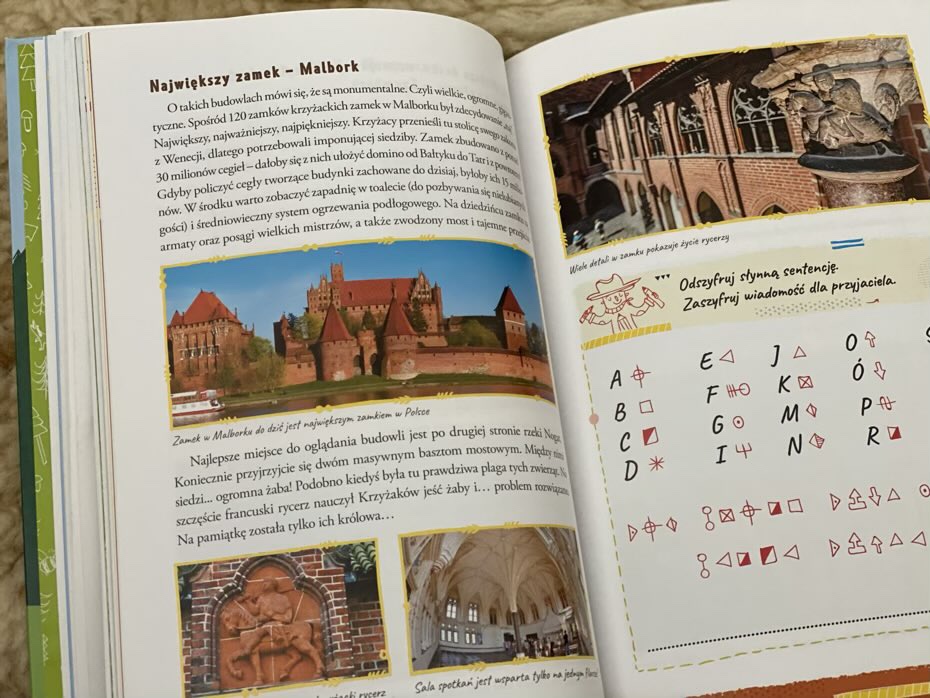 Największy zamek – Malbork
O takich budowlach mówi się, że są monumentalne. Czyli wielkie, ogromne,
tyczne. Spośród 120 zamków krzyżackich zamek w Malborku był zdecydowanie
Największy, najważniejszy, najpiękniejszy. Krzyżacy przenieśli tu stolicę swego zakonu
z Wenecji, dlatego potrzebowali imponującej siedziby. Zamek zbudowano z ponad
30 milionów cegieł – dałoby się z nich ułożyć domino od Bałtyku do Tatr i z powrotem
Gdyby policzyć cegły tworzące budynki zachowane do dzisiaj, byłoby ich 15 milio-
nów. W środku warto zobaczyć zapadnię w toalecie (do pozbywania się
gości) i średniowieczny system ogrzewania podłogowego. Na dziedzińcu zamku
armaty oraz posągi wielkich mistrzów, a także zwodzony most i tajemne
Zamek w Malborku do dziś jest największym zamkiem w Polsce
Najlepsze miejsce do oglądania budowli jest po drugiej stronie rzeki Nogat.
Koniecznie przyjrzyjcie się dwóm masywnym basztom mostowym. Między nimi
siedzi... ogromna żaba! Podobno kiedyś była tu prawdziwa plaga tych zwierząt. Na
szczęście francuski rycerz nauczył Krzyżaków jeść żaby i... problem rozwiązano.
Na pamiątkę została tylko ich królowa...
rycerz
Sala spotkań jest wsparta tylko na jednym filarze
Wiele detali w zamku pokazuje życie rycerzy
Odszyfruj słynną sentencję.
Zaszyfruj wiadomość dla przyjaciela.
A
B
C
D
E
F
G
I
J
K
M
N
O
Ó
P
R